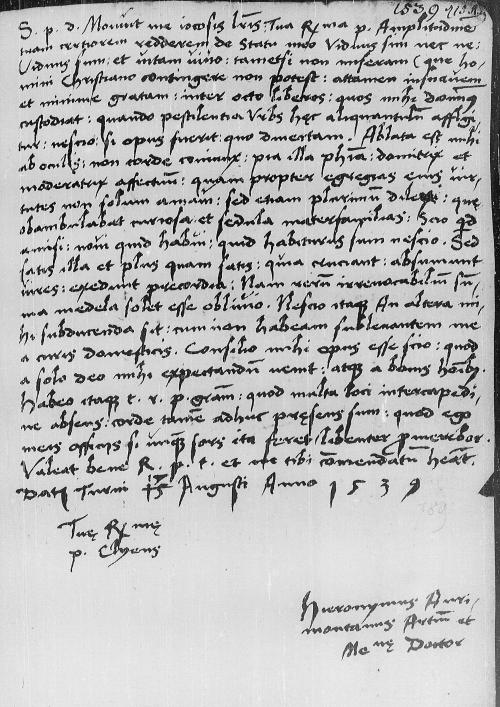 1539
S. p. d. Movit me iocosis lris: Tua Rma p. Amplitudine
tuam certiorem redderem de statu meo Viduus sim nec ne:
Viduus sum: et vitam vivo: tametsi non miseram (que ho-
mini Christiano contingere non potest: attamen insuavem
et minime gratam: inter octo liberos: quos mihi dominus
custodiat: quando pestilentia Urbs hec aliquantulum affligi-
tur: nescio: si opus fuerit: quo divertam. Ablata est mihi
ab oculis: non corde coniunx: pia illa: domitrix et
moderatrix affectuum: quam propter egregias eius vir-
tutes non solum amavi: sed etiam plurimum dilexi: que
obambulabat curiosa et sedula materfamilias: Scio qd
amisi: novi quid habui: quid habiturus sum nescio. Sed
satis illa et plus quam satis: quia cruciant: absumunt
vires: exedunt precordia: Nam rerum irrevocabilium sum-
ma medela solet esse oblivio. Nescio itaque An altera mi-
hi subducenda sit: cum non habeam sublevantem me
a curis domesticis. Consilio mihi opus esse scio: quod
a solo deo mihi expectandum venit: atque a bonis hoibus.
Habeo itaque t. r. p. gram: quod multa loci intercapedi-
ne absens: corde tamen adhuc presens sum: quod ego
meis officiis si unquam sors ita feret libenter promerebor.
Valeat bene R. p. t. et me tibi comendatum heat.
Dat Turni 15 Augusti Anno 1539
Tue Rme
p. Clyens
Hieronymus Auri-
montanus Artium et
Me ne Doctor